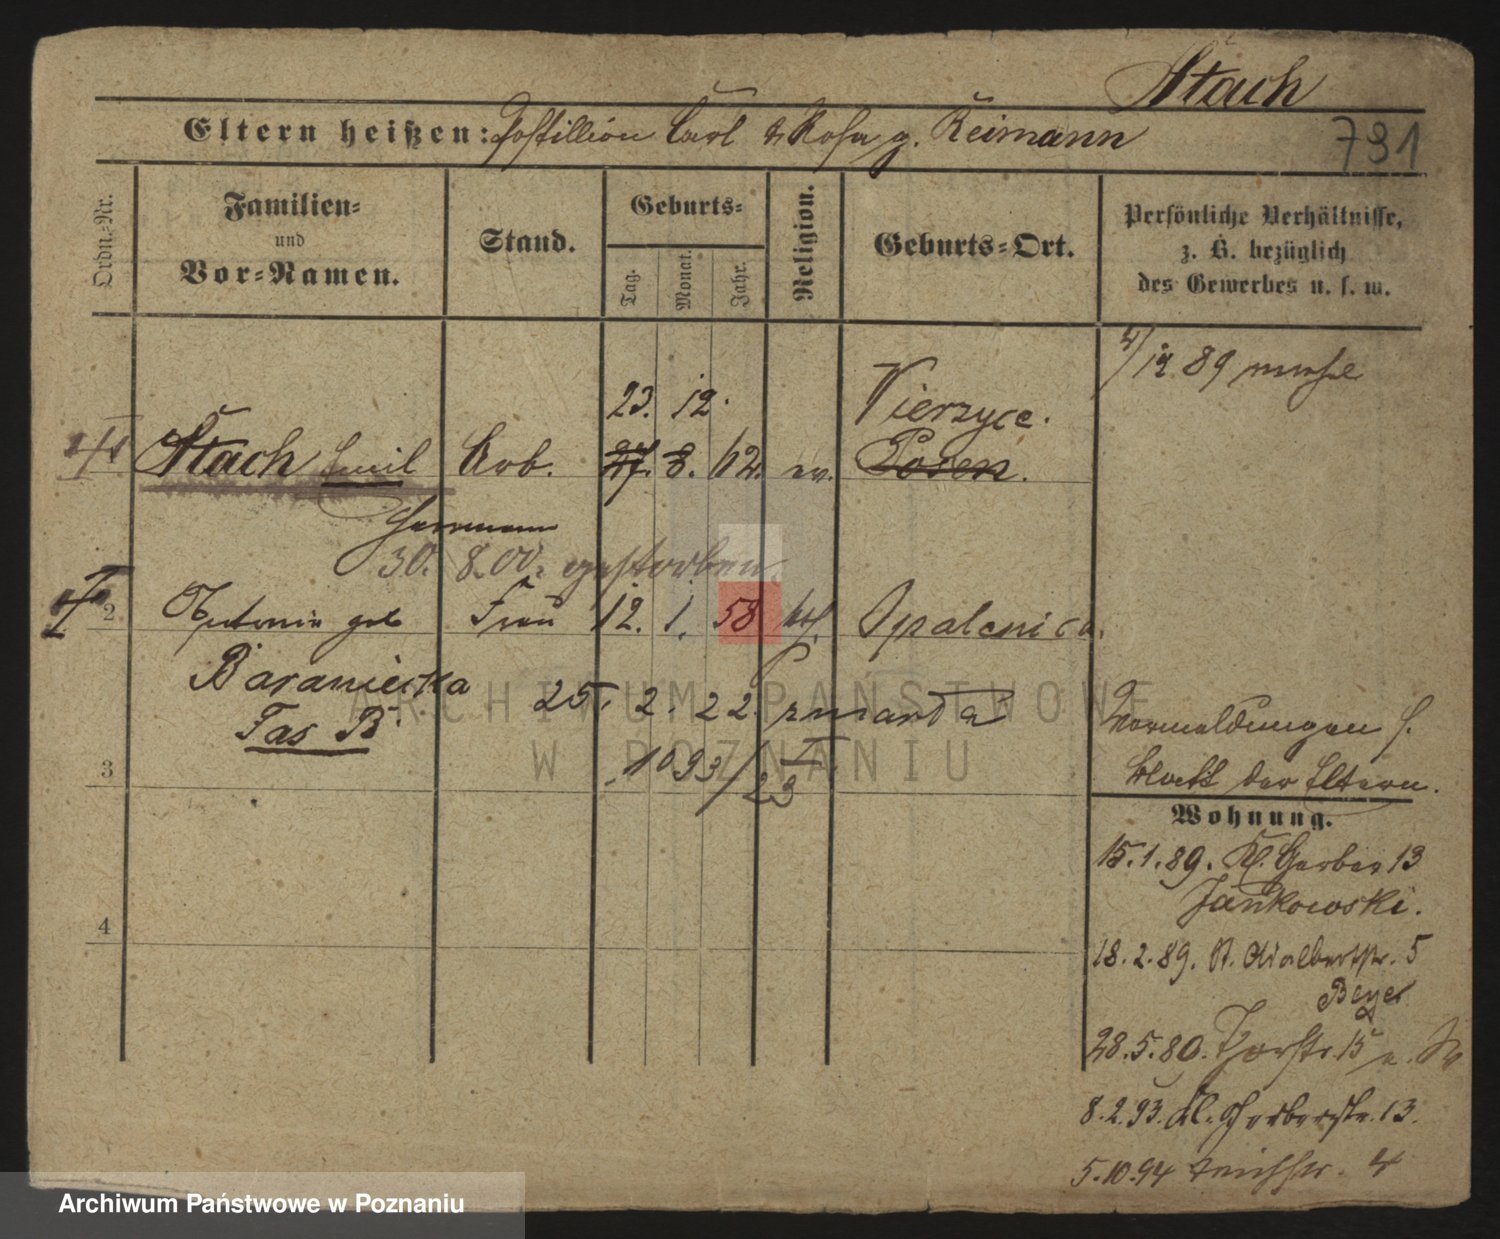 Stach
Eltern heißen: Postillion Carl & Rosa g. Reimann
791
Ordn.-Nr.
Familien-
und
Vor-Namen.
Stand.
Geburts-
Tag.
Monat.
Jahr.
Religion.
Geburts-Ort.
Persönliche Verhältnisse,
z. B. bezüglich
des Gewerbes u. s. w.
4/12 89
23. 12. Vierzyce.
Stach Emil Arb. 27. 8. 62. ev. Posen.
Herrmann
30. 8. 00. gestorben.
2 Antonie geb Frau 12. 1. 58 kath. Opalenica.
Baraniecka
Tas B.
25. 2. 22. zmarła
1093/23 I
Vormeldungen s.
Blatt der Eltern.
3
4
Wohnung.
15.1.89. Kl. Gerber 13
Jankowski.
18.2.89. St. Adalbertstr. 5
Beyer
28.5.80. Thorstr. 15
8.2.93. Kl. Gerberstr. 13.
5.10.94 4
ARCHIWUM PAŃSTWOWE
W POZNANIU
Archiwum Państwowe w Poznaniu